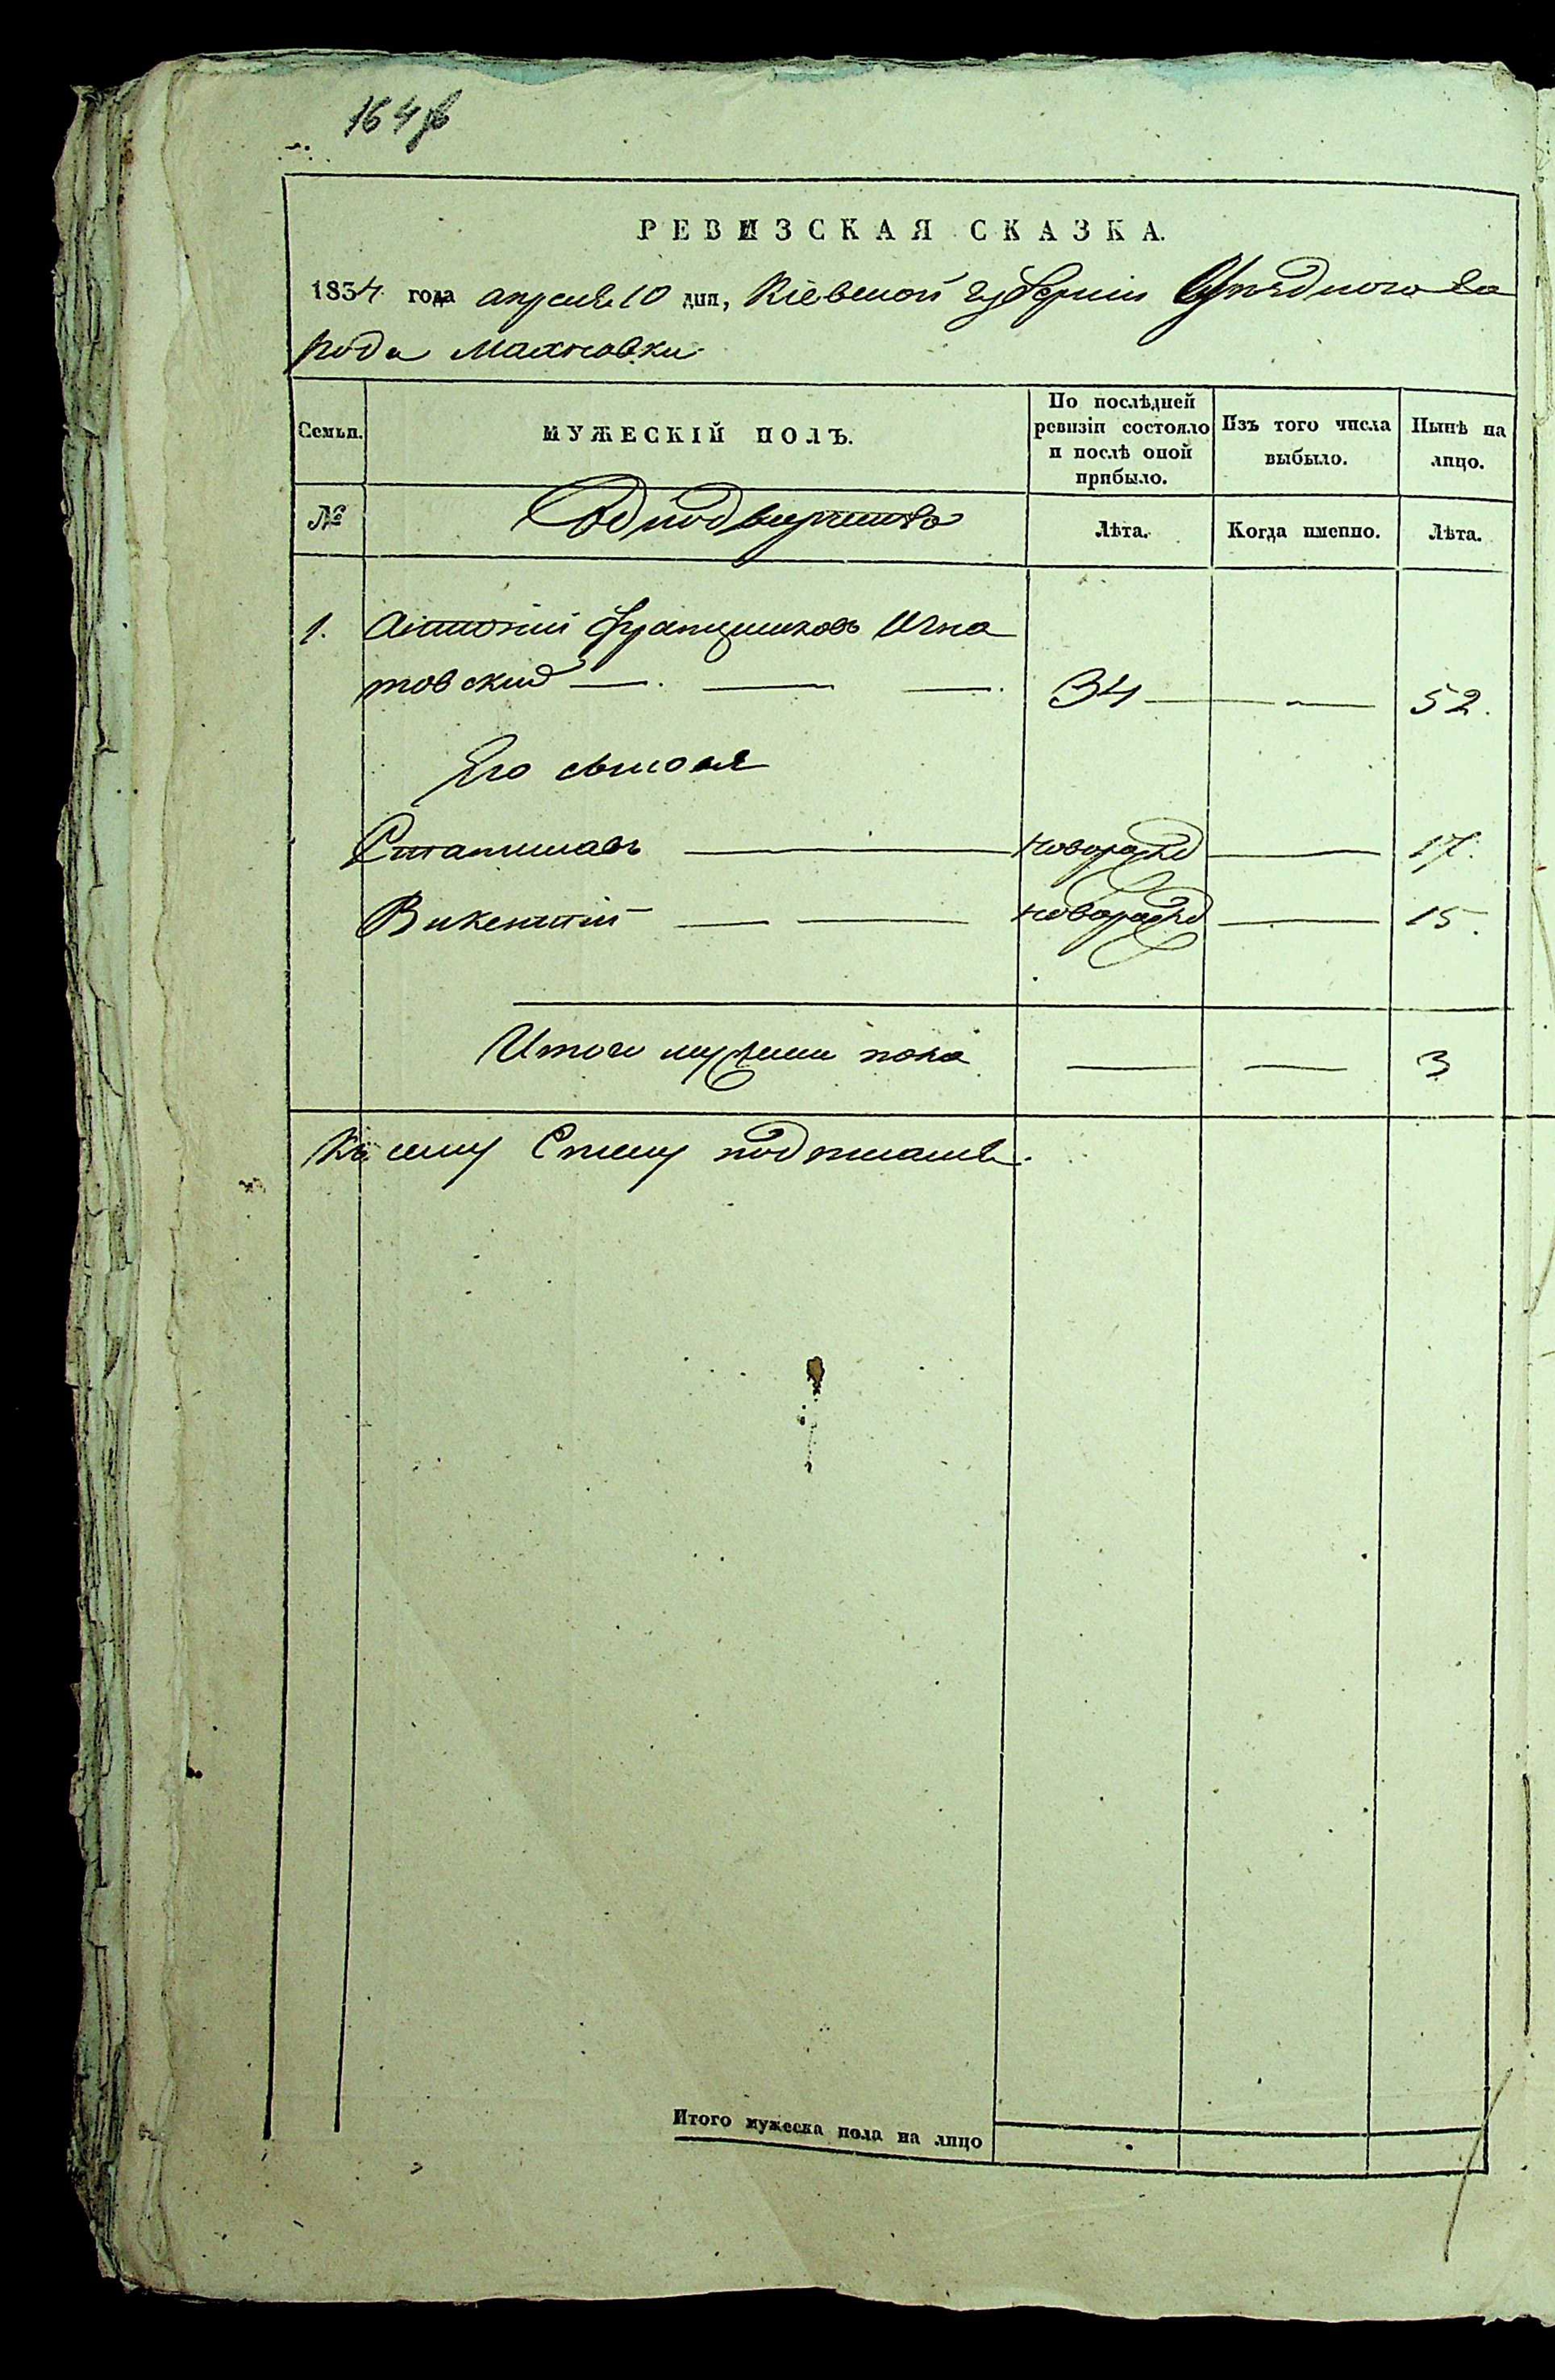 164
РЕВИЗСКАЯ СКАЗКА.
1834 года апреля 10 дня, Кіевской губерніи Уѣзднаго го
рода Махновки
Семьи. МУЖЕСКІЙ ПОЛЪ. По послѣдней ревизіи состояло и послѣ оной прибыло. Изъ того числа выбыло. Нынѣ на лицо.
№ Лѣта. Когда именно. Лѣта.
1. Антоній Францишковъ Игна
товскій 34 52.
Его сыновя
Станиславъ новорожд 17.
Викентій новорожд 15.
Итого мужеска пола 3
Къ сему
Итого мужеска пола на лицо